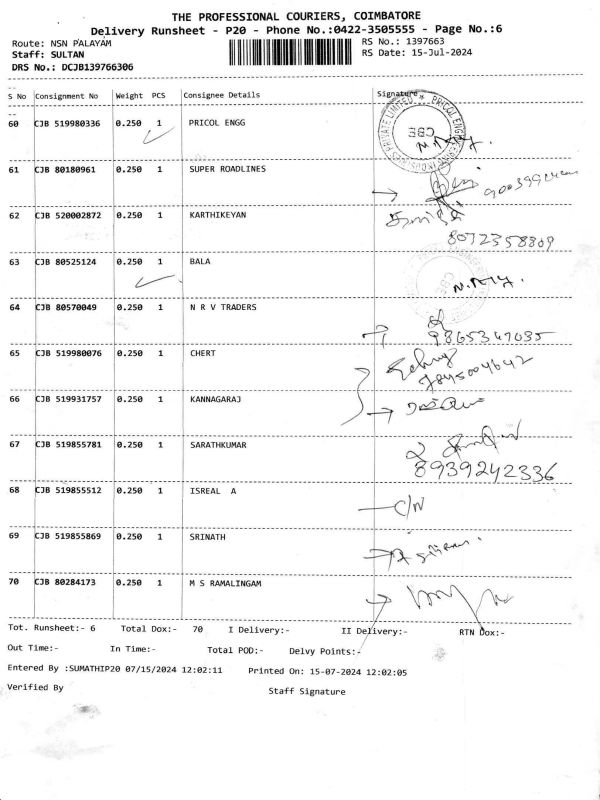 THE PROFESSIONAL COURIERS, COIMBATORE
Delivery Runsheet - P20 - Phone No.:0422-3505555 - Page No.:6
Route: NSN PALAYAM RS No.: 1397663
Staff: SULTAN RS Date: 15-Jul-2024
DRS No.: DCJB139766306
S No Consignment No Weight PCS Consignee Details Signature
60 CJB 519980336 0.250 1 PRICOL ENGG
61 CJB 80180961 0.250 1 SUPER ROADLINES
62 CJB 520002872 0.250 1 KARTHIKEYAN
8072358809
63 CJB 80525124 0.250 1 BALA
64 CJB 80570049 0.250 1 N R V TRADERS
65 CJB 519980076 0.250 1 CHERT
66 CJB 519931757 0.250 1 KANNAGARAJ
67 CJB 519855781 0.250 1 SARATHKUMAR
8939242336
68 CJB 519855512 0.250 1 ISREAL A
C/N
69 CJB 519855869 0.250 1 SRINATH
70 CJB 80284173 0.250 1 M S RAMALINGAM
Tot. Runsheet:- 6 Total Dox:- 70 I Delivery:- II Delivery:- RTN Dox:-
Out Time:- In Time:- Total POD:- Delvy Points:-
Entered By :SUMATHIP20 07/15/2024 12:02:11 Printed On: 15-07-2024 12:02:05
Verified By Staff Signature